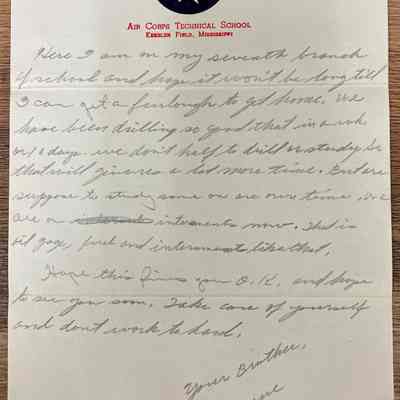 AIR CORPS TECHNICAL SCHOOL
KEESLER FIELD, MISSISSIPPI
Here I am on my seventh branch
of school and hope it won't be long till
I can get a furlough to get home. We
have been drilling so good that in a wk
or 10 days. we don't half to drill or study so
that will give us a lot more time. But are
suppose to study some on are our time. We
are on interments now. That is
oil gage, fuel and interments like that.
Hope this finds you O.K. and hope
to see you soon. Take care of yourself
and don't work to hard.
Your Brother,